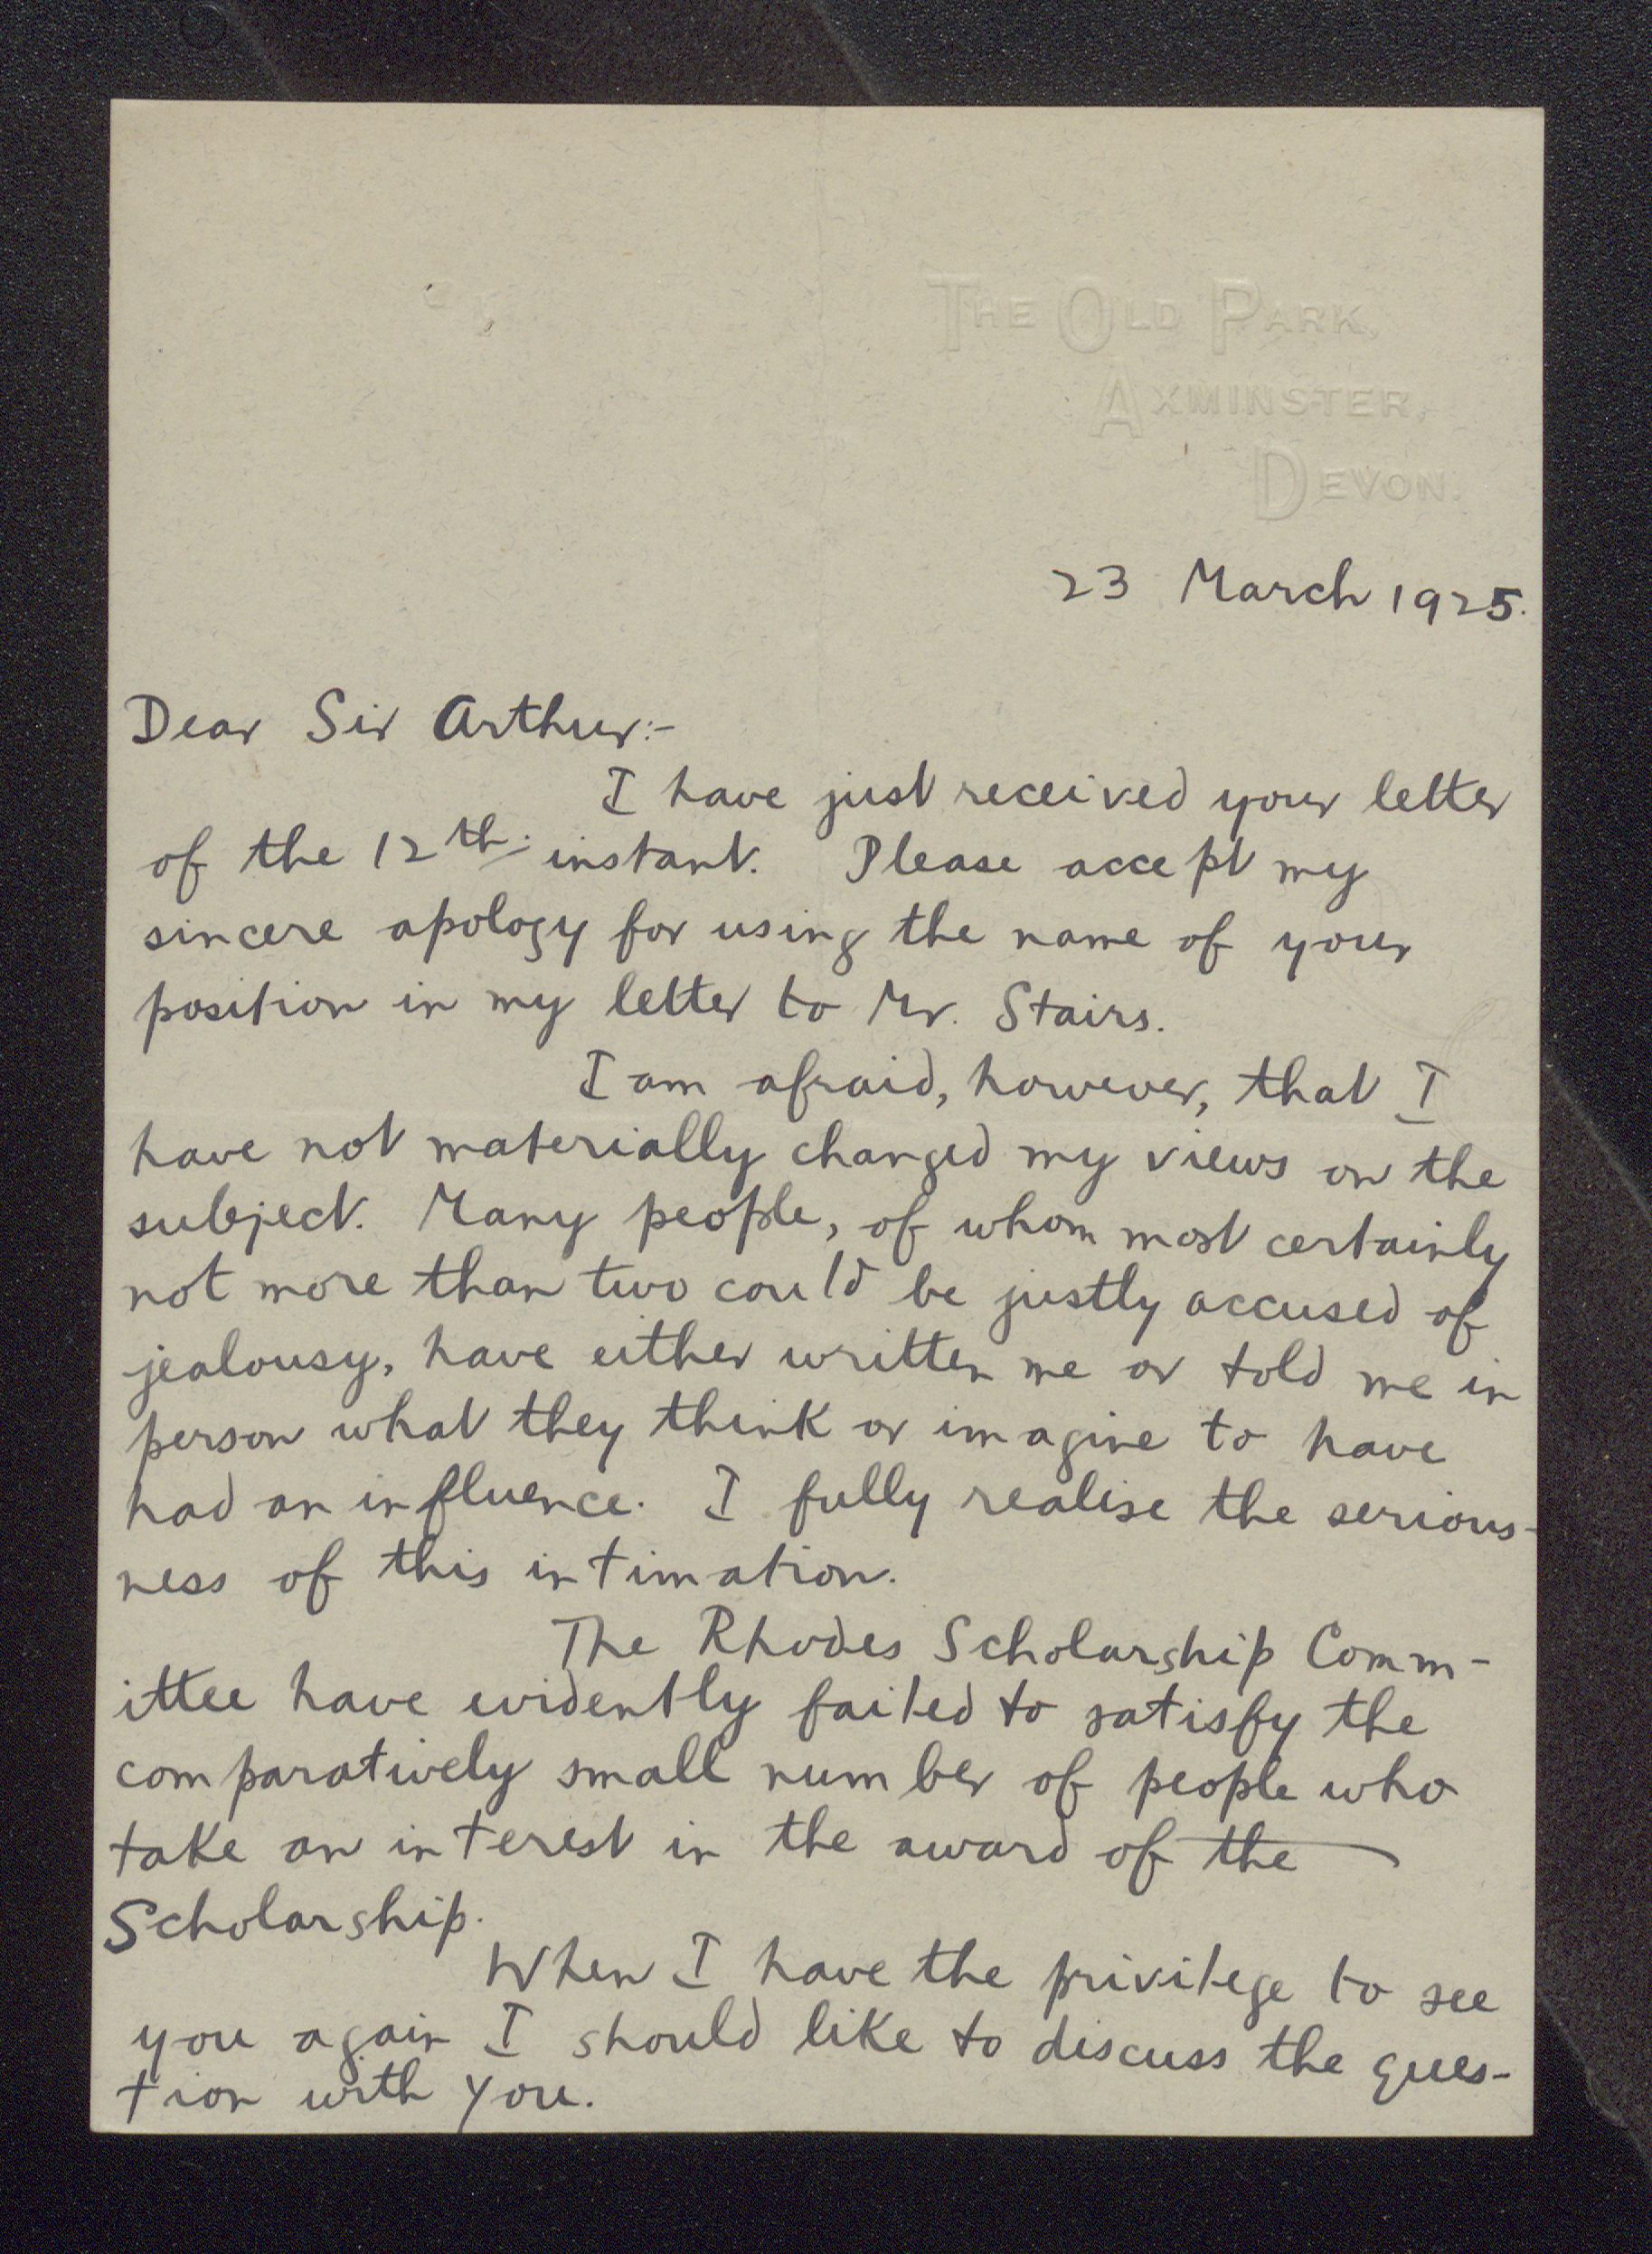 THE OLD PARK,
AXMINSTER,
DEVON.
23 March 1925.
Dear Sir Arthur:-
I have just received your letter
of the 12th. instant. Please accept my
sincere apology for using the name of your
position in my letter to Mr. Stairs.
I am afraid, however, that I
have not materially changed my views on the
subject. Many people, of whom most certainly
not more than two could be justly accused of
jealousy, have either written me or told me in
person what they think or imagine to have
had an influence. I fully realise the serious-
ness of this intimation.
The Rhodes Scholarship Comm-
ittee have evidently failed to satisfy the
comparatively small number of people who
take an interest in the award of the
Scholarship.
When I have the privilege to see
you again I should like to discuss the ques-
tion with you.